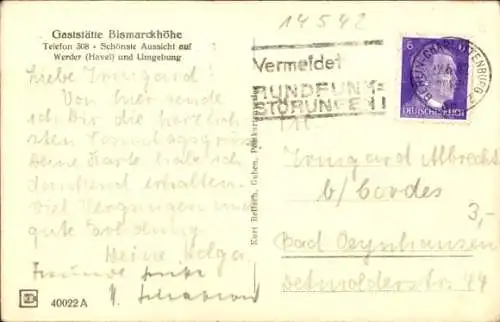 14542
Gaststätte Bismarckhöhe
Telefon 308 · Schönste Aussicht auf
Werder (Havel) und Umgebung
Liebe Irmgard!
Von hier sende
ich Dir die herzlich-
sten
Deine Karte habe ich
dankend erhalten.
Viel Vergnügen und
gute Erholung.
Deine Helga
40022 A
Kurt Bellach, Guben, Postkartenverlag
Vermeidet
RUNDFUNK-
STÖRUNGEN!
6 6
DEUTSCHES REICH
BERLIN-CHARLOTTENBURG 2
Irmgard Albrecht
b/ Cordes
3,-
Bad Oeynhausen
Detmolderstr. 44